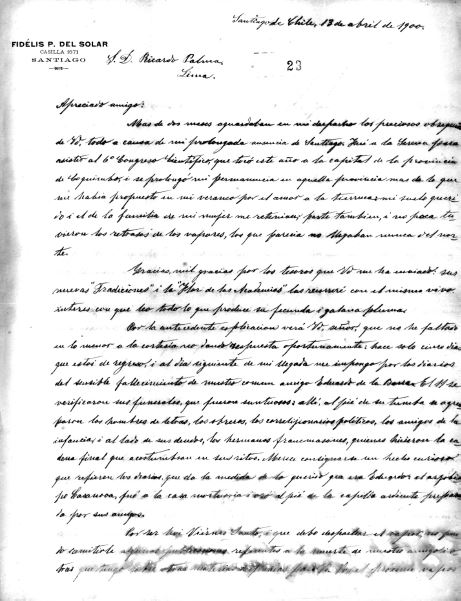 Santiago de Chile, 13 de abril de 1900.
FIDÉLIS P. DEL SOLAR
CASILLA 1671
SANTIAGO
S. D. Ricardo Palma,
Lima.
23
Apreciado amigo:
Mas de dos meses aguardaban en mi despacho los preciosos obsequios
de Vd, todo a causa de mi prolongada ausencia de Santiago. Fui a la Serena para
asistir al 6º Congreso Científico, que tocó este año a la capital de la provincia
de Coquimbo, i se prolongó mi permanencia en aquella provincia mas de lo que
me habia propuesto en mi veraneo por el amor a la tierruca: mi suelo queri-
do i el de la familia de mi mujer me retenian; parte tambien, i no poca tu-
vieron los retardos de los vapores, los que parecia no llegaban nunca del nor-
te.
Gracias, mil gracias por los tesoros que Vd me ha enviado: sus
nuevas "Tradiciones" i la "Flor de las Academias" las recorreré con el mismo vivo
interes con que leo todo lo que produce su fecunda i galana pluma.
Por la antecedente esplicacion verá Vd, señor, que no he faltado
en lo menor a la cortesia no dando respuesta oportunamente: hace solo cinco dias
que estoi de regreso, i al dia siguiente de mi llegada me impongo por los diarios
del sensible fallecimiento de nuestro comun amigo Eduardo de la Barra. El 11 se
verificaron sus funerales, que fueron suntuosos: allí, al pié de su tumba se agru-
paron los hombres de letras, los obreros, los correlijionarios políticos, los amigos de la
infancia, i al lado de sus deudos, los hermanos francmasones, quienes hicieron la ca-
dena final que acostumbran en sus ritos. Merece consignarse un hecho curioso
que refieren los diarios, que da la medida de lo querido que era Eduardo: el arzobis-
po Casanova, fué a la casa mortuoria i oró al pié de la capilla ardiente prepara-
da por sus amigos.
Por ser hoi Viernes Santo, i que debo despachar el vapor, no pue-
do remitirle algunas publicaciones referentes a la muerte de nuestro amigo i o-
tras que tengo sobre otras materias